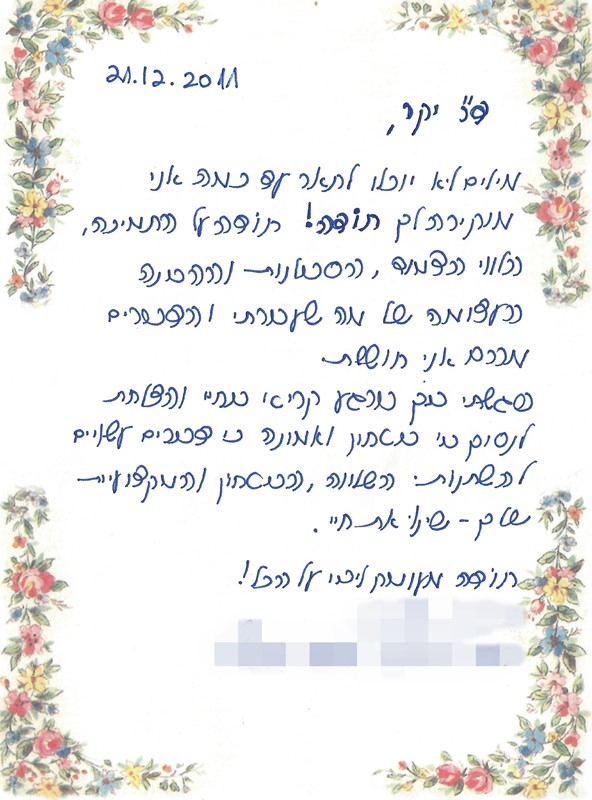 21.12.2011
יקר,
מילים לא יוכלו לתאר עד כמה אני
מוקירה לך תודה! תודה על התמיכה,
הלווי הצמוד, הסבלנות וההבנה
העצומה של מה שעברתי והדברים
מהם אני חוששת.
פגשתי בך ברגע קריטי בחיי והצלחת
לנסוך בי בטחון ואמונה כי דברים עשויים
להשתנות. השלווה, הבטחון והמקצועיות
שלך - שינו את חיי.
תודה מעומק ליבי על הכל!